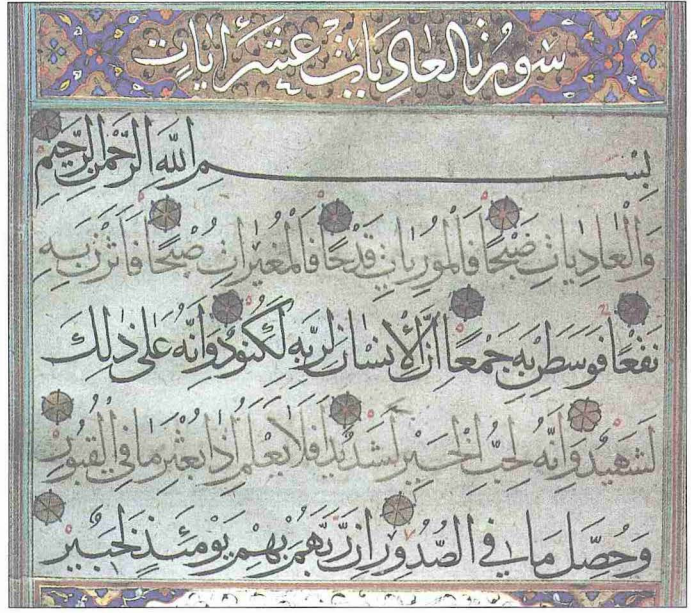 سورة العاديات عشر ايات
بسم الله الرحمن الرحيم
وَالْعَادِيَاتِ ضَبْحًا فَالْمُورِيَاتِ قَدْحًا فَالْمُغِيرَاتِ صُبْحًا فَأَثَرْنَ بِهِ
نَقْعًا فَوَسَطْنَ بِهِ جَمْعًا إِنَّ الْإِنْسَانَ لِرَبِّهِ لَكَنُودٌ وَإِنَّهُ عَلَى ذَلِكَ
لَشَهِيدٌ وَإِنَّهُ لِحُبِّ الْخَيْرِ لَشَدِيدٌ أَفَلَا يَعْلَمُ إِذَا بُعْثِرَ مَا فِي الْقُبُورِ
وَحُصِّلَ مَا فِي الصُّدُورِ إِنَّ رَبَّهُمْ بِهِمْ يَوْمَئِذٍ لَخَبِيرٌ